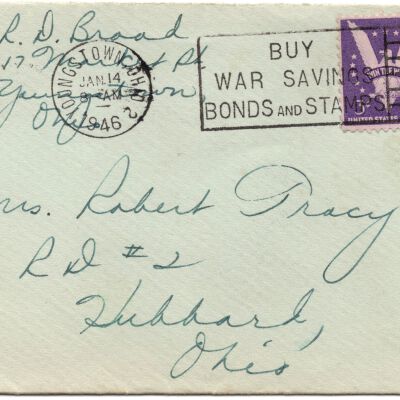 R. D. Broad
Youngstown
Ohio
YOUNGSTOWN, OHIO 2
JAN 14
8 AM
1946
BUY
WAR SAVINGS
BONDS AND STAMPS
WIN THE
UNITED STATES
Mrs. Robert Tracy
RD #2
Hubbard,
Ohio